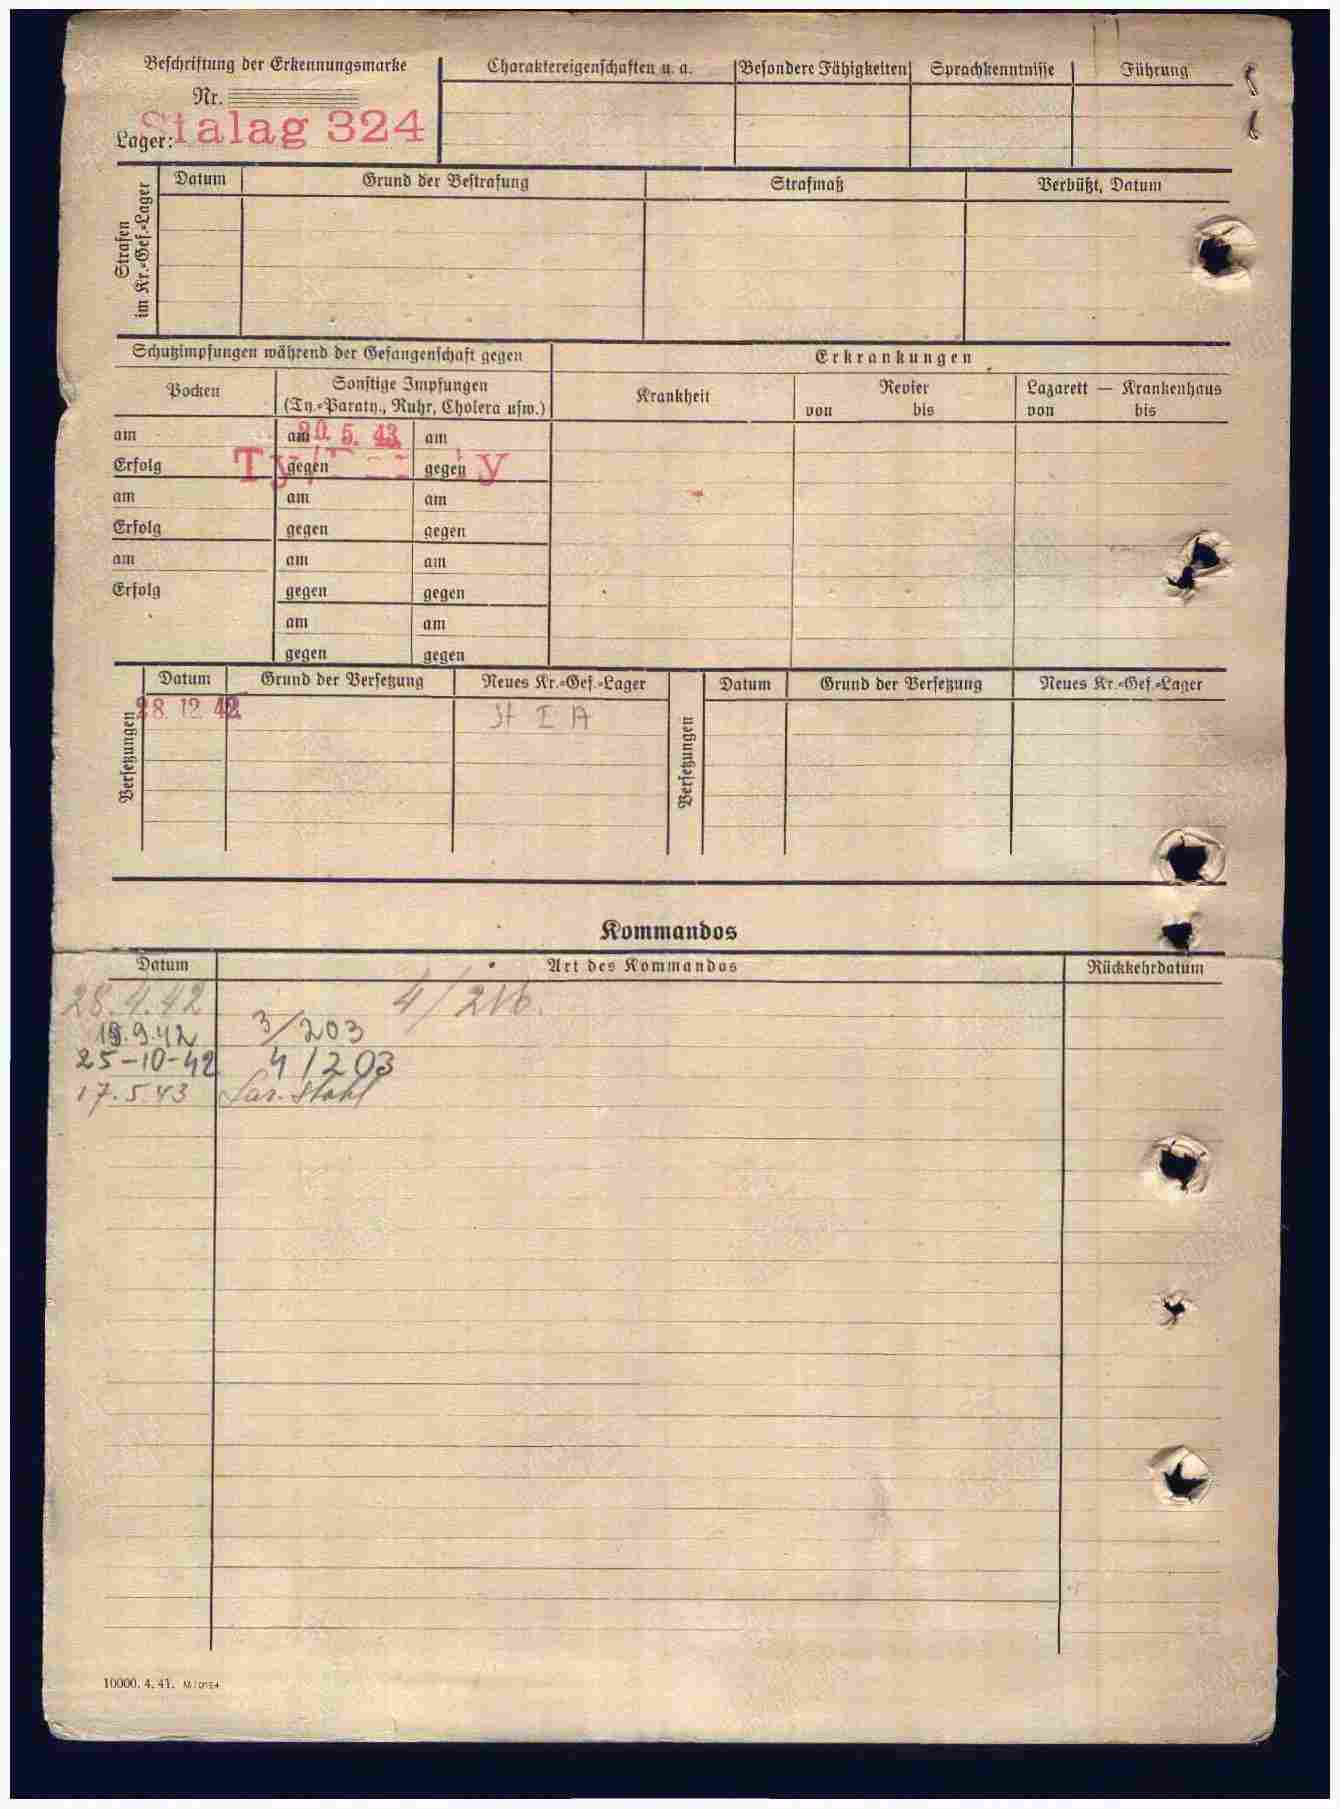 Beschriftung der Erkennungsmarke
Nr.
Lager: Stalag 324
Charaktereigenschaften u. a.
Besondere Fähigkeiten
Sprachkenntnisse
Führung
Strafen im Kr.-Gef.-Lager
Datum
Grund der Bestrafung
Strafmaß
Verbüßt, Datum
Schutzimpfungen während der Gefangenschaft gegen
Erkrankungen
Pocken
Sonstige Impfungen
(Ty.-Paraty., Ruhr, Cholera usw.)
Krankheit
Revier
von bis
Lazarett — Krankenhaus
von bis
am am 20. 5. 43 am
Erfolg gegen gegen
am am am
Erfolg gegen gegen
am am am
Erfolg gegen gegen
am am
gegen gegen
Versetzungen
Datum Grund der Versetzung Neues Kr.-Gef.-Lager
28. 12. 42. I A
Versetzungen
Datum Grund der Versetzung Neues Kr.-Gef.-Lager
Kommandos
Datum Art des Kommandos Rückkehrdatum
28.4.42 4/216.
9.42 3/203
25-10-42 4/203
17.5.43
10000. 4. 41.